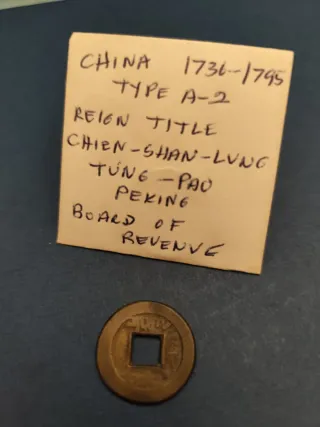 CHINA 1736-1795
TYPE A-2
REIGN TITLE
CHIEN-SHAN-LUNG
TUNG-PAO
PEKING
BOARD OF
REVENUE